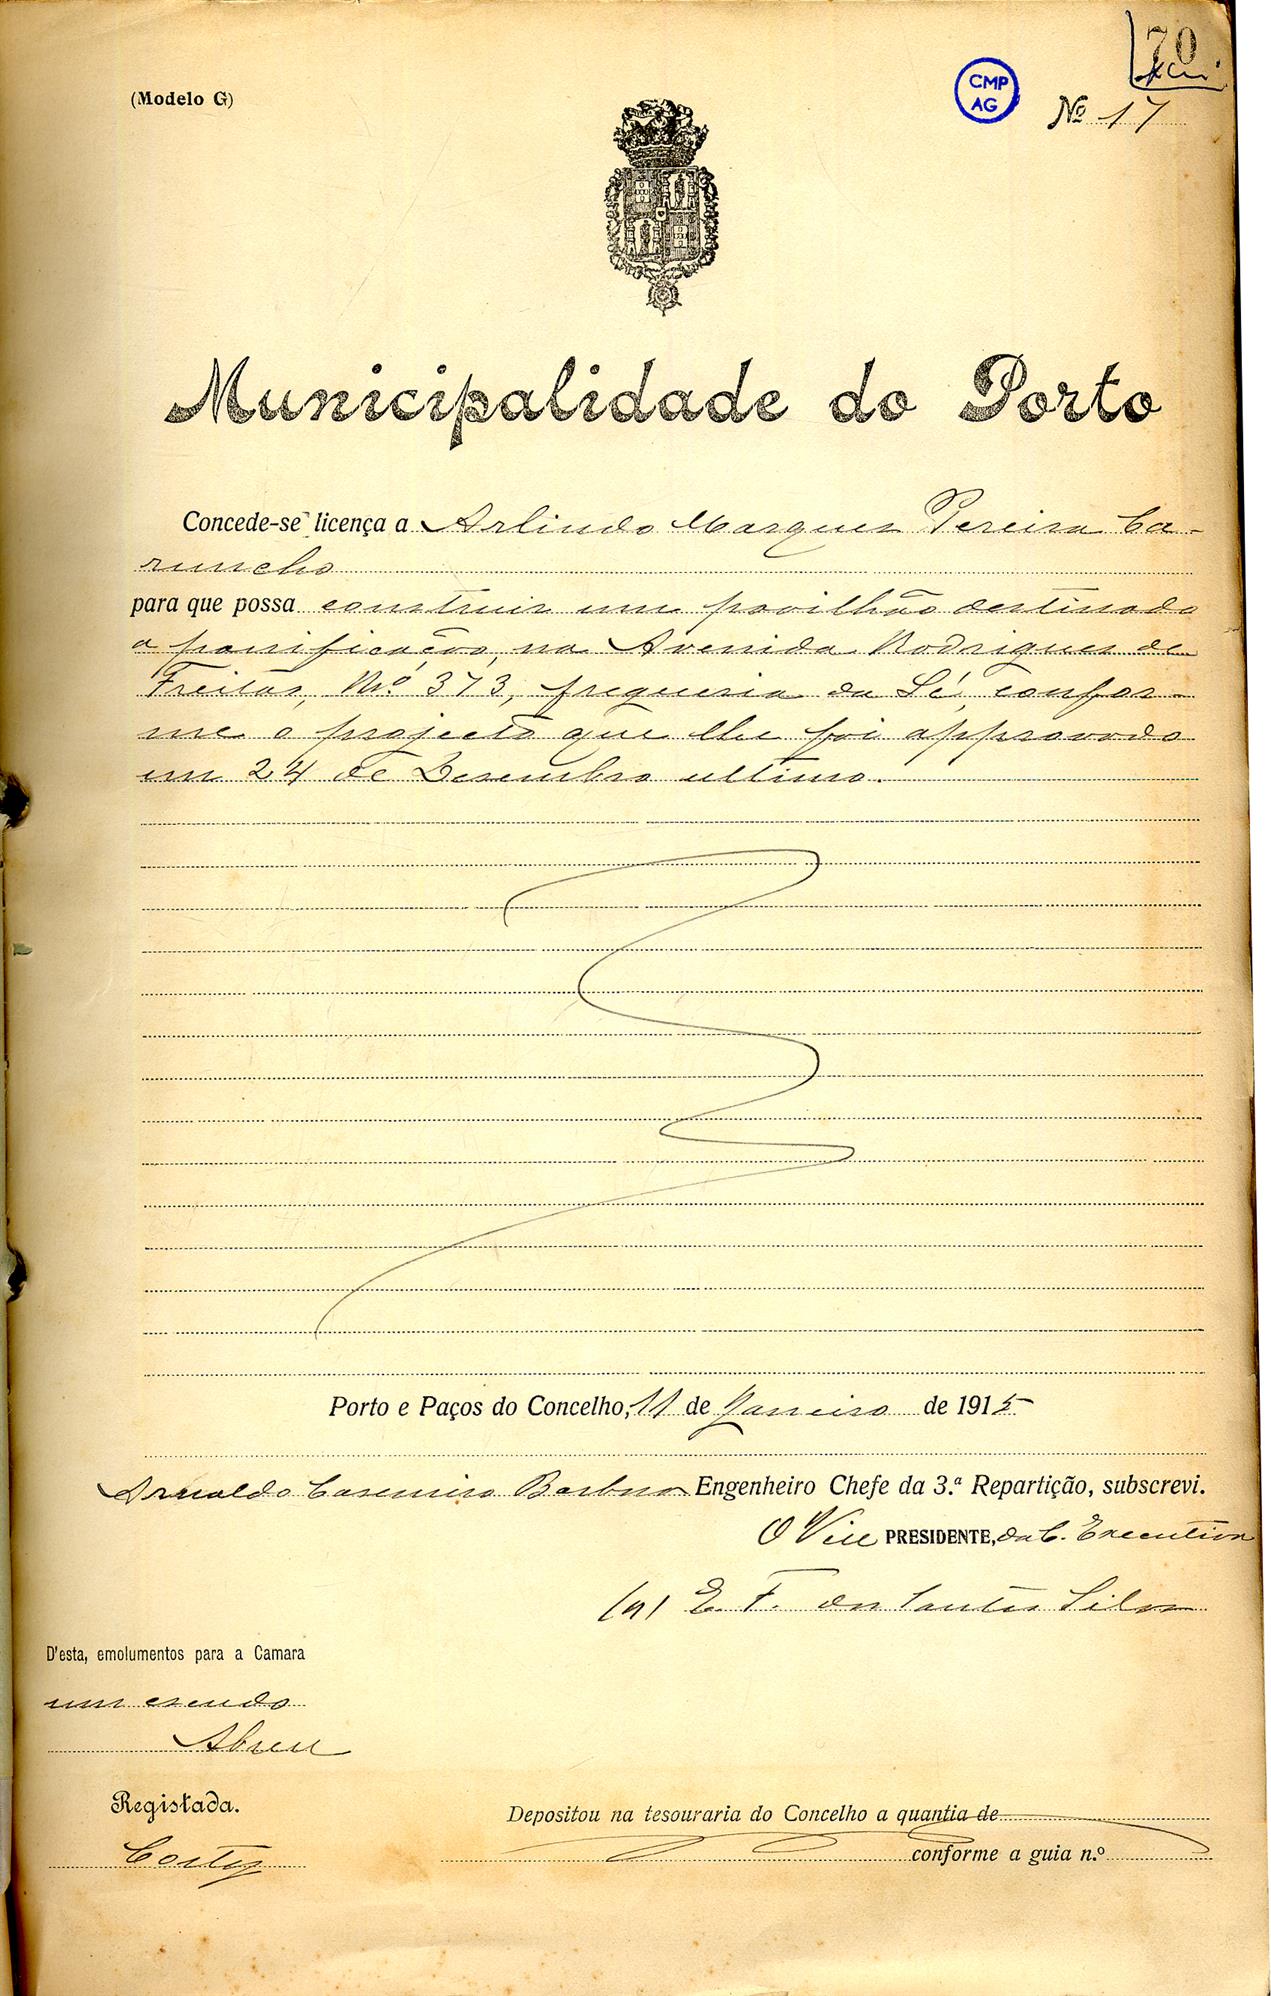 70
(Modelo G)
CMP
AG
Nº 17
Municipalidade do Porto
Concede-se licença a Arlindo Marques Pereira Ca-
runcho
para que possa construir um pavilhão destinado
a panificação, na Avenida Rodrigues de
Freitas, Nº 373, freguesia da Sé, confor-
me o projecto que lhe foi approvado
em 24 de Dezembro ultimo.
Porto e Paços do Concelho, 11 de Janeiro de 1915
Arnaldo Casimiro Barbosa Engenheiro Chefe da 3.ª Repartição, subscrevi.
O Vice PRESIDENTE, da C. Executiva
(a) E. F. dos Santos Silva
D'esta, emolumentos para a Camara
um escudo
Abreu
Registada.
Depositou na tesouraria do Concelho a quantia de
conforme a guia n.º